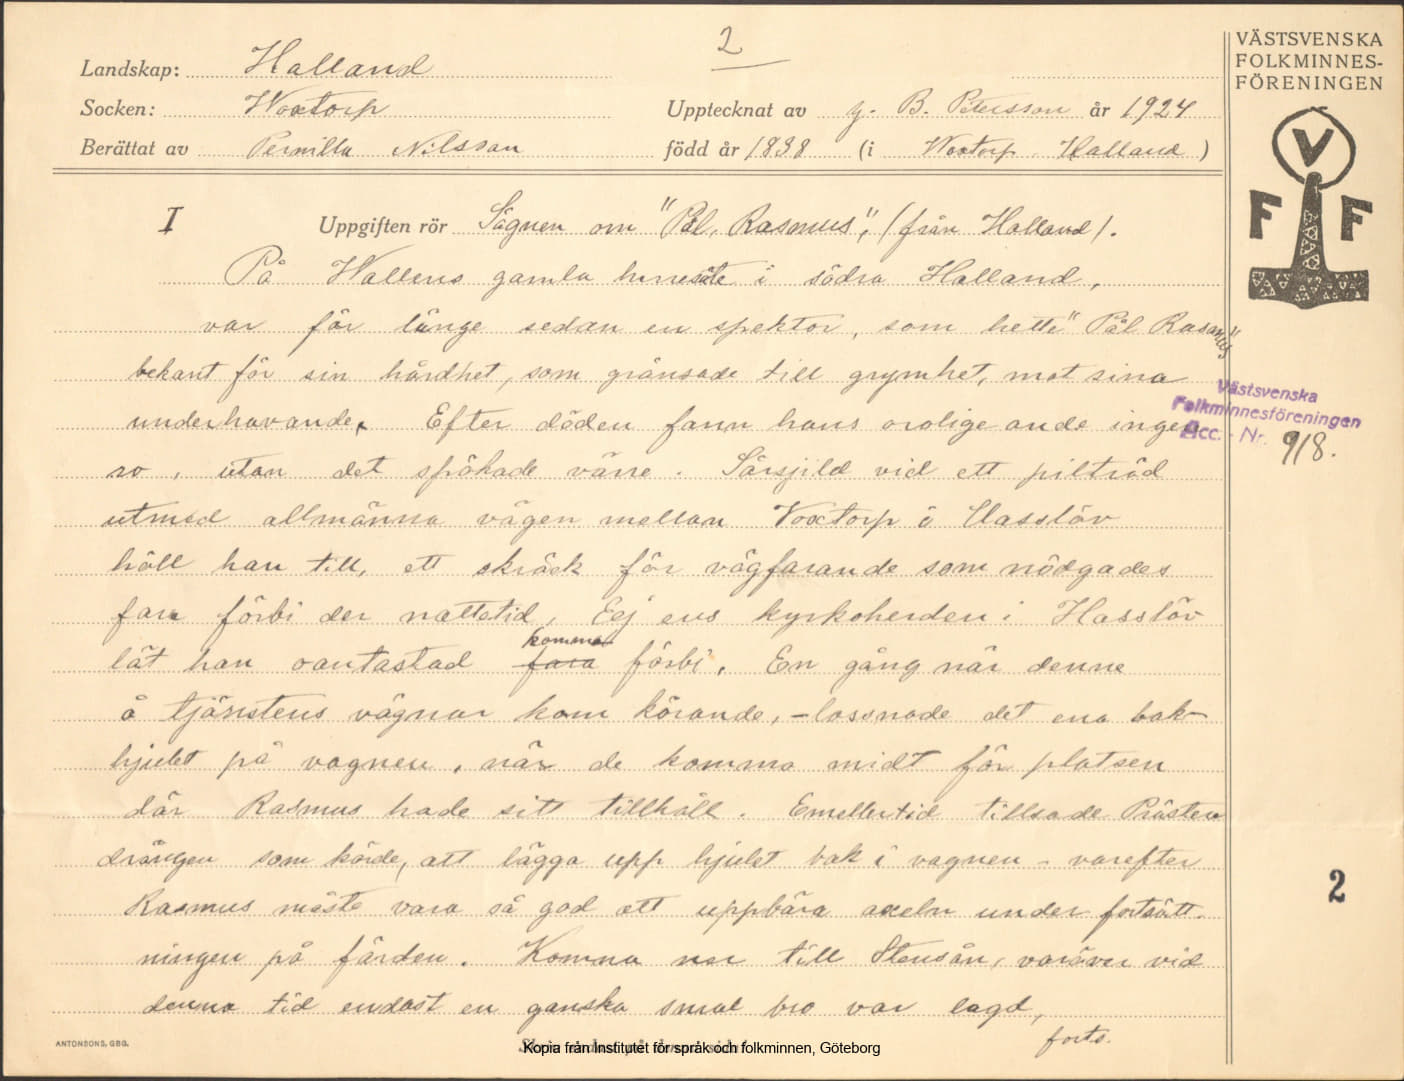 2
Landskap: Halland
Socken: Woxtorp
Upptecknat av J. B. Petersson år 1924
Berättat av Pernilla Nilsson född år 1838 (i Woxtorp Halland)
VÄSTSVENSKA
FOLKMINNES-
FÖRENINGEN
V
F F
I Uppgiften rör Sägnen om "Pål Rasmus", (från Halland).
På Wallens gamla herresäte i södra Halland,
var för länge sedan en spektor, som hette "Pål Rasmus"
bekant för sin hårdhet, som gränsade till grymhet, mot sina
underhavande. Efter döden fann hans orolige ande ingen
ro, utan det spökade värre. Särsjild vid ett pilträd
utmed allmänna vägen mellan Voxtorp å Hasslöv
höll han till, ett skräck för vägfarande som nödgades
fara förbi der nattetid, Eej ens kyrkoherden i Hasslöv
komma
lät han oantastad fara förbi. En gång när denne
å tjänstens vägnar kom körande, - lossnade det ena bak-
hjulet på vagnen, när de komma midt för platsen
där Rasmus hade sitt tillhåll. Emellertid tillsade Prästen
drängen som körde, att lägga upp hjulet bak i vagnen - varefter
Rasmus måste vara så god att uppbära axeln under fortsätt-
ningen på färden. Komna ner till Stensån, varöver vid
denna tid endast en ganska smal bro var lagd,
forts.
Västsvenska
Folkminnesföreningen
Acc. - Nr. 918.
2
ANTONSONS, GBG.
Kopia från Institutet för språk och folkminnen, Göteborg